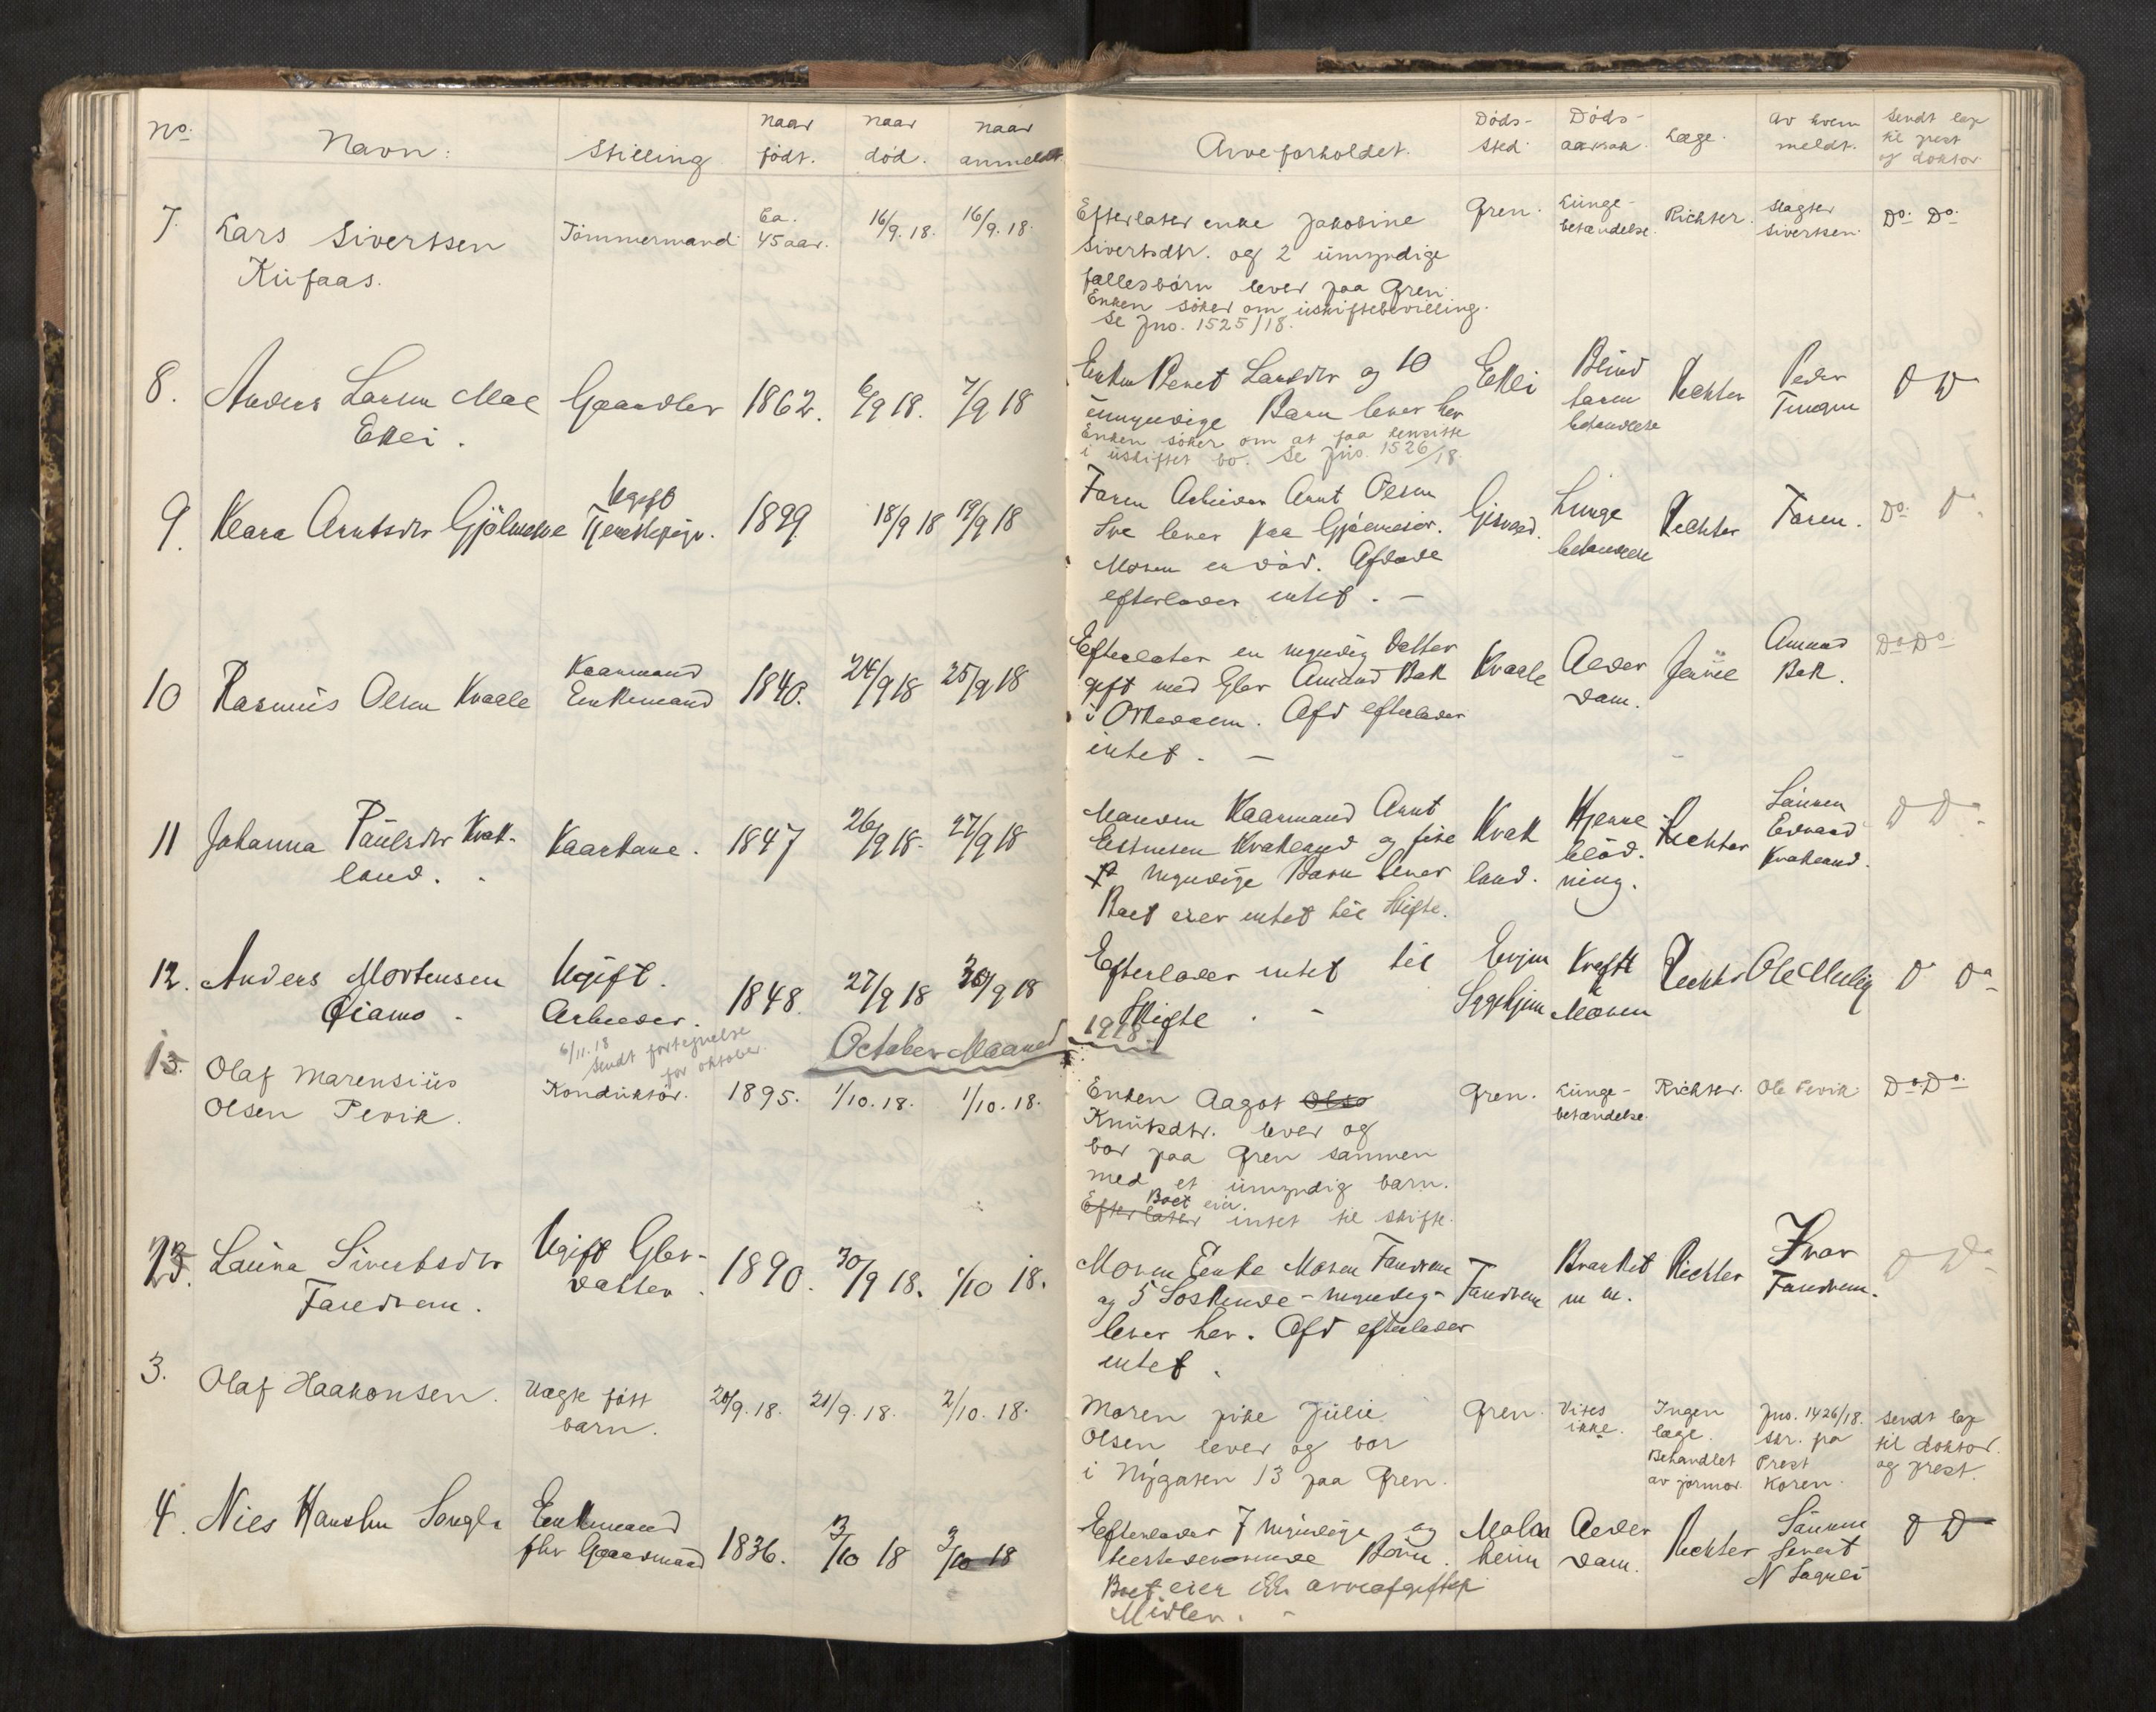 No.
Navn:
Stilling
naar
födt.
naar
död.
naar
anmeldt.
Arveforholdet.
Döds-
sted
Döds-
aarsak
Læge.
Av hvem
meldt.
Sendt lap
til prest
og doktor
7.
Lars Sivertsen
Kufaas.
Tömmermand
Ca.
45 aar.
16/9. 18.
16/9. 18.
Efterlater enke Jakobine
Sivertsdtr. og 2 umyndige
fællesbörn lever paa Gren.
Enken söker om uskiftebevilling.
Se Jno. 1525/18.
Gren.
Lunge-
betændelse.
Richter.
Slagter
Sivertsen.
Do. Do.
8.
Anders Larsen Moe
Ekli.
Gaardbr
1862.
6/9 18.
7/9 18
Enken Beret Larsdtr og 10
umyndige Barn lever her
Enken söker om at faa hensitte
i uskiftet bo. Se Jno. 1526/18.
Ekli
Blind
tarm
betændelse
Richter
Peder
D D
9.
Klara Arntsdtr Gjölmesve
Ugift
Tjenestepige.
1899
18/9 18
19/9 18
Faren Arbeider Arnt Olsen
Sve lever paa Gjölmesör.
Moren er död. Afdöde
efterlader intet. -
Lunge
betændelse
Richter
Faren.
Do. Do
10
Rasmus Olsen Kvaale
Kaarmand
Enkemand
1840.
24/9 18
25/9 18
Efterlater en myndig Datter
gift med Gbr Amund Bak
i Orkedalen. Afd efterlader
intet. -
Kvaale
Alder
dom.
Amund
Bak.
Do Do.
11
Johanna Paulsdtr Kvak-
land.
Kaarkone.
1847
26/9 18.
27/9 18
Manden Kaarmand Arnt
Estensen Kvakland og fire
myndige Barn lever
Boet eier intet til Skifte.
Kvak
land.
Hjerne
blöd.
ning.
Richter
Sönnen
Edvard
Kvakland.
D Do
12.
Anders Mortensen
Ugift.
Arbeider.
1848.
27/9 18
30/9 18
Efterlader intet til
Skifte. -
Evjen
Kræft
i
Maven
Richter
D Do
6/11.18
Sendt fortegnelse
for oktober.
October Maaned 1918
13.
Olaf Marensius
Olsen Pevik.
Konduktör.
1895.
1/10. 18.
1/10. 18.
Enken Aagot Olso
Knutsdtr. lever og
bor paa Gren sammen
med et umyndig barn.
Boet eier
Efterlater intet til skifte.
Gren.
Lunge-
betændelse
Richter.
Ole Pevik.
Do. Do.
Laura Sivertsdtr
Fandrem.
Ugift Gbr-
datter.
1890.
30/9 18.
1/10 18.
Moren Enke Maren Fandrem
og 5 Söskende - myndig -
lever her. Afd efterlader
intet.
Fandrem
Brækket
m m.
Richter
Ivar
Fandrem.
D Do
3.
Olaf Haakonsen.
Uægte fött
barn.
20/9. 18.
21/9. 18.
2/10. 18.
Moren pike Julie
Olsen lever og bor
i Nygaten 13 paa Gren.
Gren.
Vites
ikke.
Ingen
læge.
Behandlet
av jormor.
Jno. 1426/18.
skr. fra
Prest
Koren.
Sendt lap
til doktor.
og prest.
4.
Nils Hansen
Enkemand
fhv Gaardmand
1836.
3/10 18
3/10 18
Efterlader 7 myndige og
tilstedeværende Börn.
Boet eier ikke arveafgiftspl
Midler. -
Alder
dom.
Richter
Sönnen
Sivert
N
D D